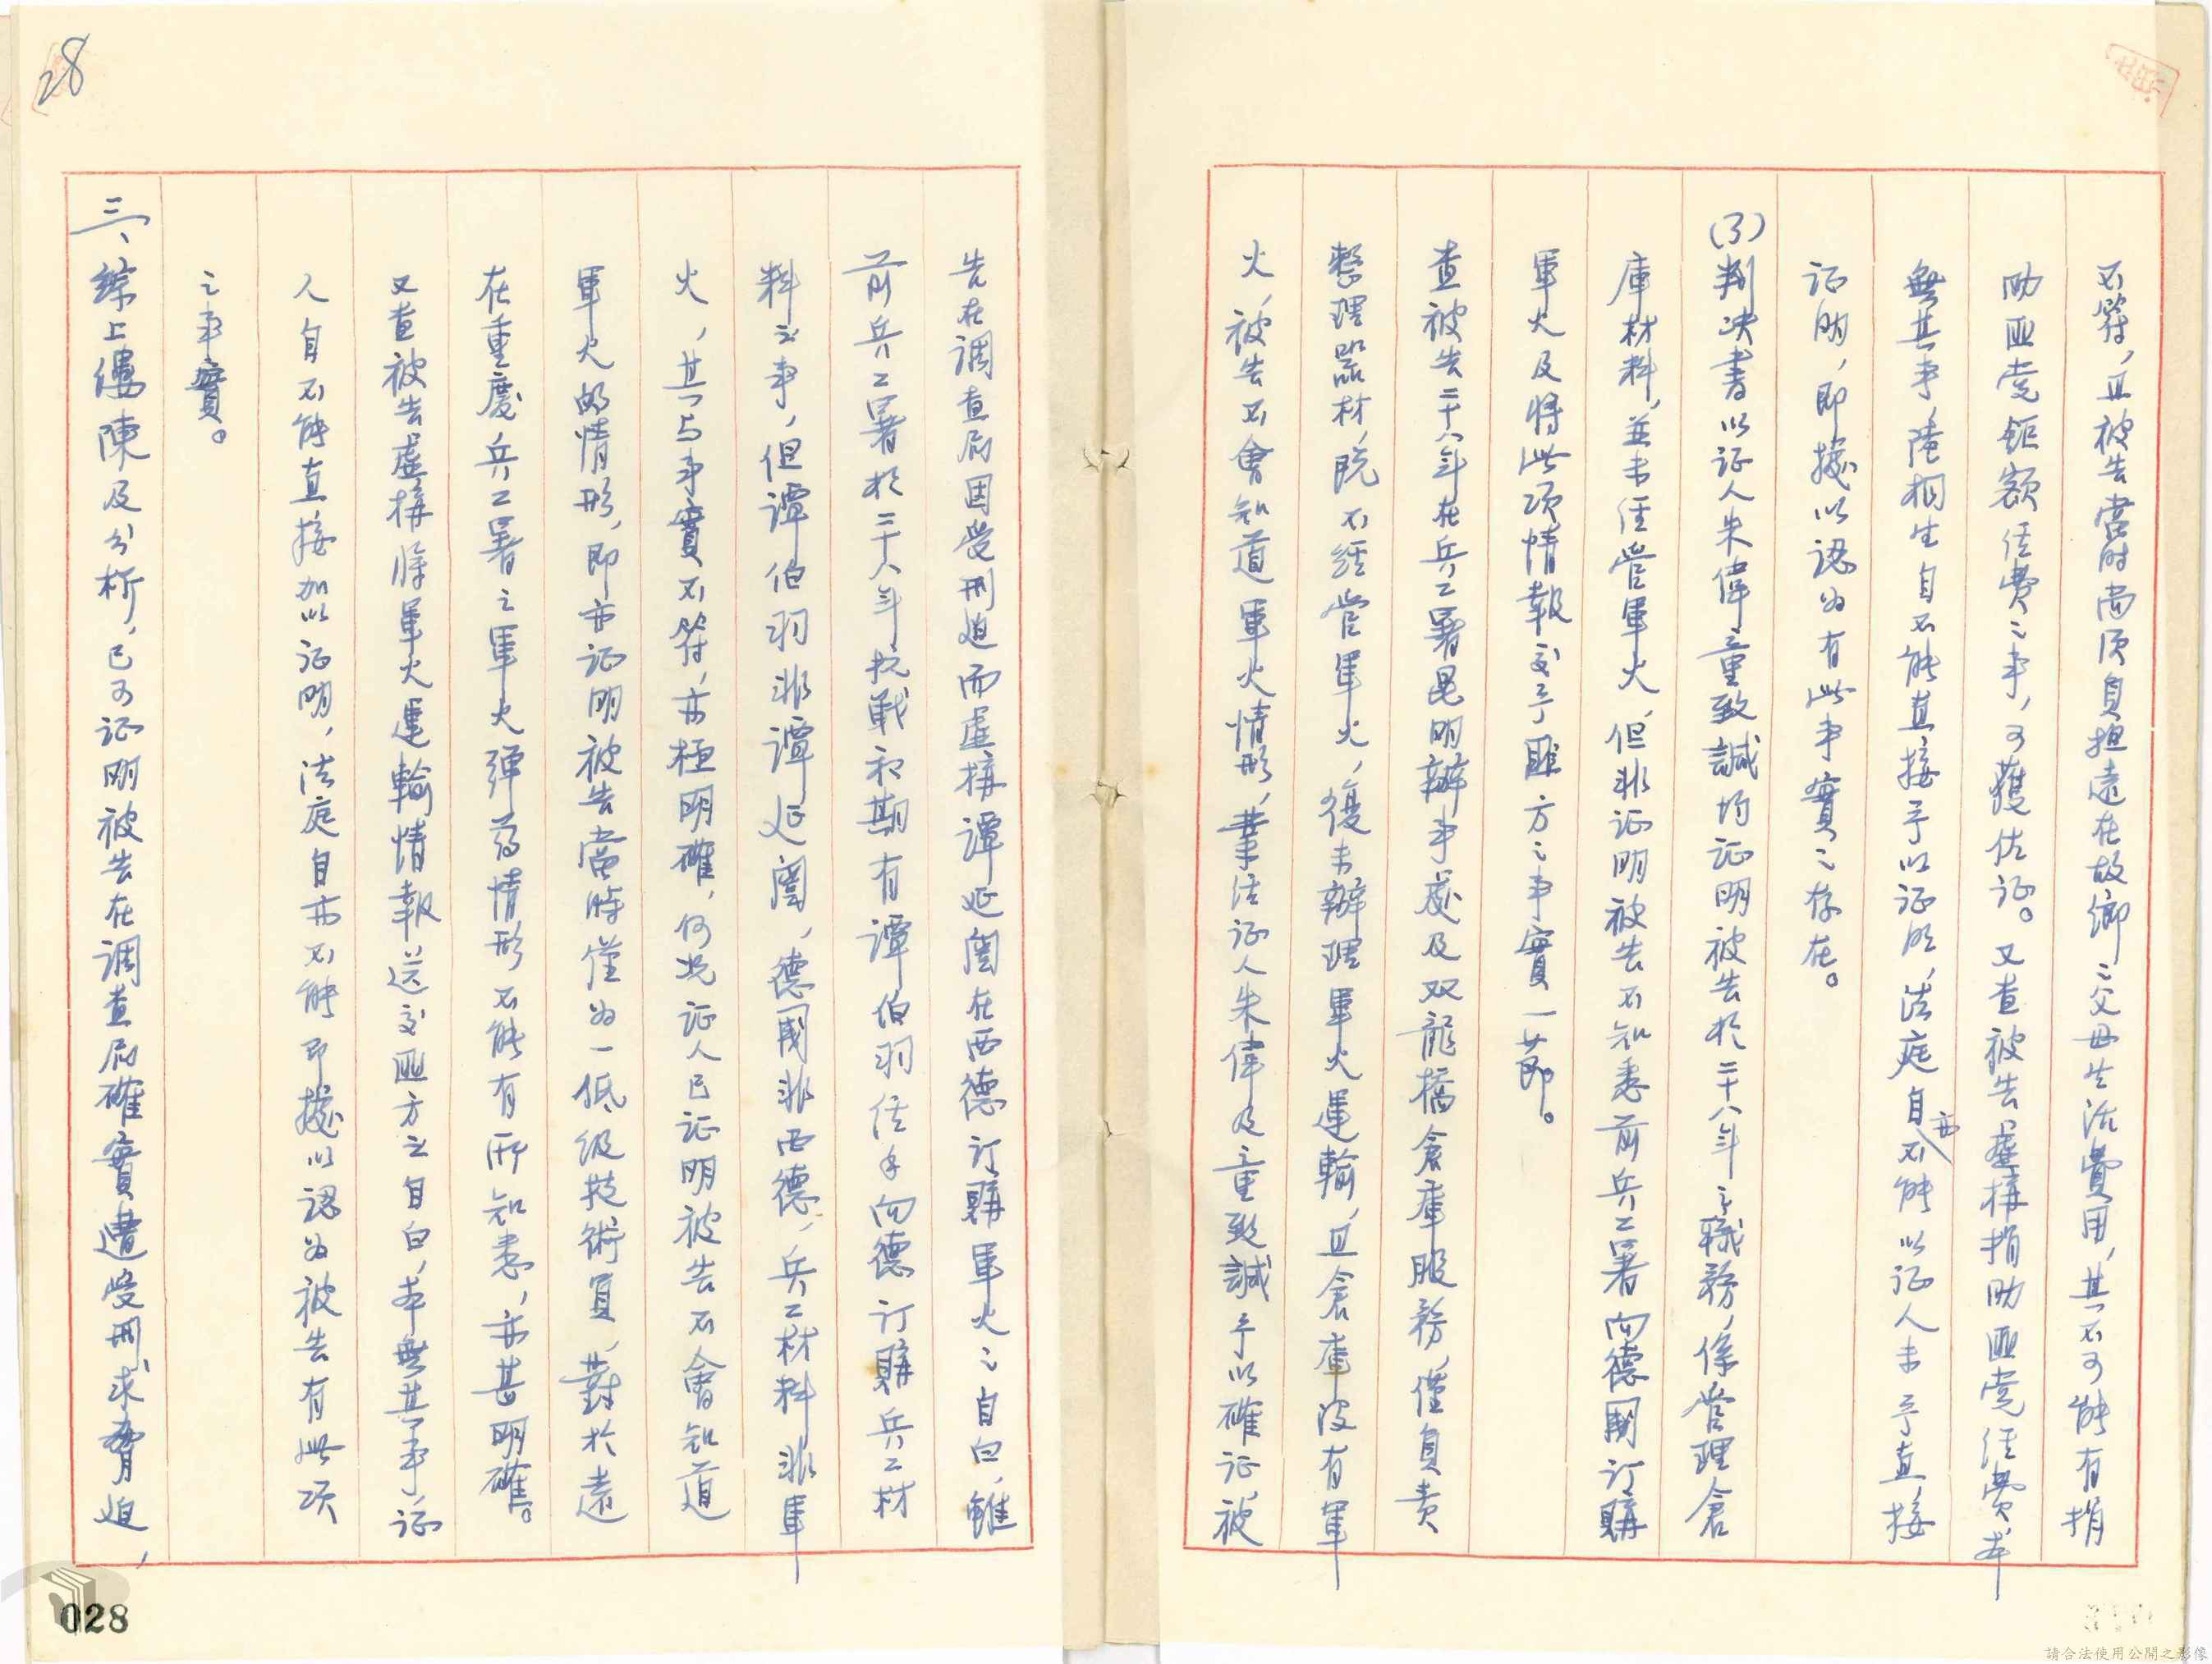 不符，且被告當时尚须負担遠在故鄉之父母生活費用，其不可能有捐
助匪党鉅額经費之事，可獲佐证。又查被告虛構捐助匪党经費，本
無其事，陸相生自不能直接予以证明，法庭自亦不能以证人未予直接
证明，即據以認为有此事實之存在。
(3)判决書以证人朱偉、童致諴均证明被告於二十八年之職務，係管理倉
庫材料，並未经管軍火，但非证明被告不知悉前兵工署向德國订購
軍火及將此項情報交予匪方之事實一節。
查被告二十八年在兵工署昆明辦事處及双龍橋倉庫服務，僅負責
整理器材，既不经管軍火，復未辦理軍火運輸，且倉庫没有軍
火，被告不會知道軍火情形，業经证人朱偉及童致諴予以確证，被
告在調查局因受刑迫而虛構譚延闓在西德订購軍火之自白，雖
前兵工署於二十八年抗戰初期有譚伯羽经手向德订購兵工材
料之事，但譚伯羽非譚延闓，德國非西德，兵工材料非軍
火，其与事實不符，亦極明確，何况证人已证明被告不會知道
軍火的情形，即亦证明被告當時僅为一低级技術員，對於遠
在重慶兵工署之軍火彈药情形不能有所知悉，亦甚明確。
又查被告虛構將軍火運輸情報送交匪方之自白，本無其事，证
人自不能直接加以证明，法庭自亦不能即據以認为被告有此項
之事實。
三、綜上僂陳及分析，已可证明被告在调查局確實遭受刑求脅迫，
28
028
請合法使用公開之影像